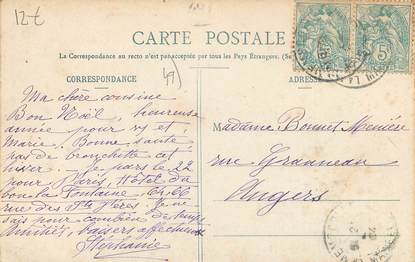 12€
CARTE POSTALE
La Correspondance au recto n'est pas acceptée par tous les Pays Étrangers. (Se
CORRESPONDANCE
ADRESSE
Ma chère cousine
Bon Noël, heureuse
année pour et
Marie. Bonne santé
pas de bronchite cet
hiver. Je pars le 22
pour Paris, Hôtel du
bon La Fontaine. 64-66
rue des Sts Pères. Je ne
sais pour combien de temps
Amitiés, baisers affectueux
Stéphanie
Madame Bonnet Menière
rue
Angers
5